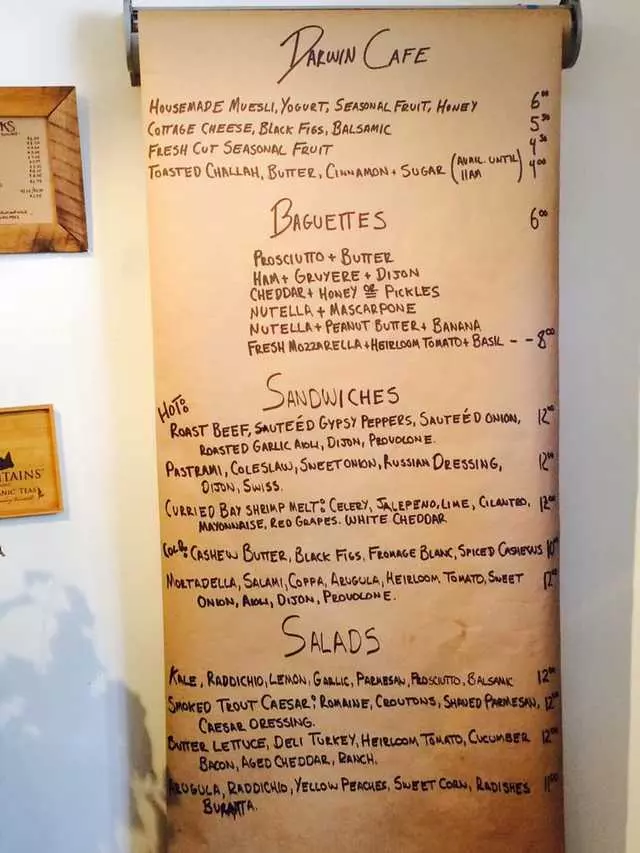 Darwin Cafe
Housemade Muesli, Yogurt, Seasonal Fruit, Honey 6.00
Cottage Cheese, Black Figs, Balsamic 5.50
Fresh Cut Seasonal Fruit 4.50
Toasted Challah, Butter, Cinnamon + Sugar (Avail. until 11am) 4.00
Baguettes 6.00
Prosciutto + Butter
Ham + Gruyere + Dijon
Cheddar + Honey or Pickles
Nutella + Mascarpone
Nutella + Peanut Butter + Banana
Fresh Mozzarella + Heirloom Tomato + Basil - - 8.00
Sandwiches
Hot:
Roast Beef, Sauteéd Gypsy Peppers, Sauteéd Onion, 12.00
Roasted Garlic Aioli, Dijon, Provolone.
Pastrami, Coleslaw, Sweet Onion, Russian Dressing, 12.00
Dijon, Swiss.
Curried Bay Shrimp Melt: Celery, Jalepeno, Lime, Cilantro, 12.00
Mayonnaise, Red Grapes. White Cheddar
Cold: Cashew Butter, Black Figs, Fromage Blanc, Spiced Cashews 10.00
Mortadella, Salami, Coppa, Arugula, Heirloom Tomato, Sweet 12.00
Onion, Aioli, Dijon, Provolone.
Salads
Kale, Raddichio, Lemon, Garlic, Parmesan, Prosciutto, Balsamic 12.00
Smoked Trout Caesar: Romaine, Croutons, Shaved Parmesan, 12.00
Caesar Dressing.
Butter Lettuce, Deli Turkey, Heirloom Tomato, Cucumber 12.00
Bacon, Aged Cheddar, Ranch.
Arugula, Raddichio, Yellow Peaches, Sweet Corn, Radishes 11.00
Buratta.